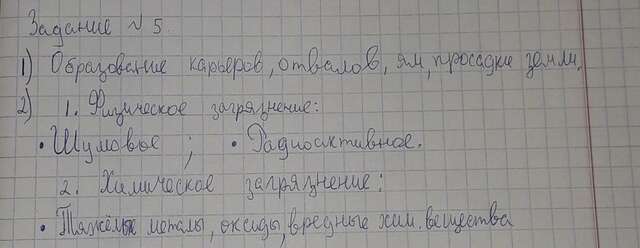 Задание № 5.
1) Образование карьеров, отвалов, ям, просадки земли.
2) 1. Физическое загрязнение:
• Шумовое ; • Радиоактивное.
2. Химическое загрязнение:
• Тяжёлые металы, оксиды, вредные хим. вещества